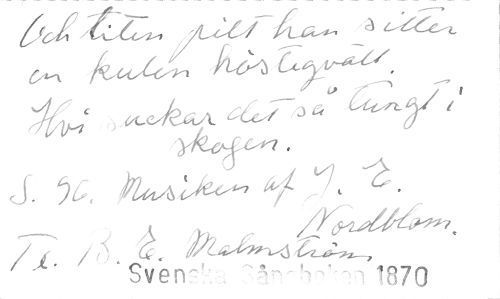 Och liten pilt han sitter
en kulen höstegväll.
Hvi suckar det så tungt i
skogen.
S. 96. Musiken af J. E.
Nordblom.
Te. B. E. Malmström
Svenska Sångboken 1870